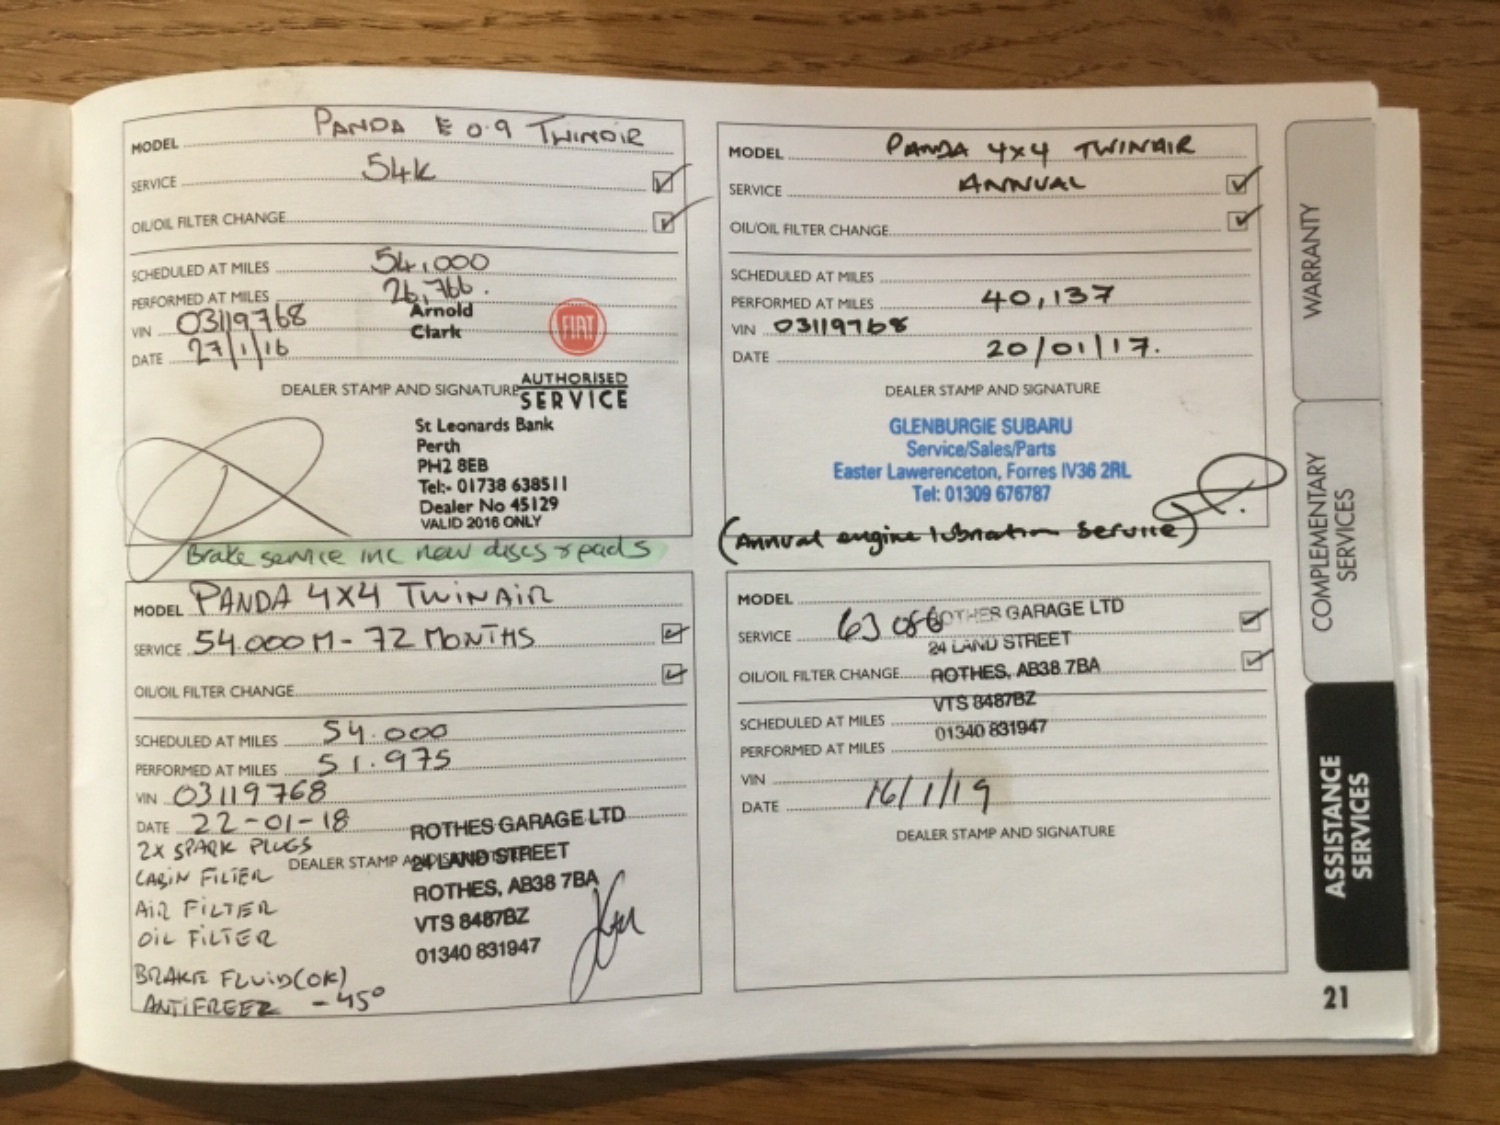 MODEL PANDA E 0.9 TWINAIR
SERVICE 54K
OIL/OIL FILTER CHANGE
SCHEDULED AT MILES 54,000
PERFORMED AT MILES 26,766.
VIN 03119768
DATE 27/1/16
Arnold
Clark
FIAT
DEALER STAMP AND SIGNATURE
AUTHORISED
SERVICE
St Leonards Bank
Perth
PH2 8EB
Tel:- 01738 638511
Dealer No 45129
VALID 2016 ONLY
Brake service inc new discs & pads
MODEL PANDA 4x4 TWINAIR
SERVICE ANNUAL
OIL/OIL FILTER CHANGE
SCHEDULED AT MILES
PERFORMED AT MILES 40,137
VIN 03119768
DATE 20/01/17.
DEALER STAMP AND SIGNATURE
GLENBURGIE SUBARU
Service/Sales/Parts
Easter Lawerenceton, Forres IV36 2RL
Tel: 01309 676787
(Annual engine lubrication service)
MODEL PANDA 4X4 TWINAIR
SERVICE 54.000M - 72 MONTHS
OIL/OIL FILTER CHANGE
SCHEDULED AT MILES 54.000
PERFORMED AT MILES 51.975
VIN 03119768
DATE 22-01-18
2x SPARK PLUGS
DEALER STAMP AND
CABIN FILTER
AIR FILTER
OIL FILTER
BRAKE FLUID (OK)
ANTIFREEZ -45°
ROTHES GARAGE LTD
24 LAND STREET
ROTHES, AB38 7BA
VTS 8487BZ
01340 831947
MODEL
SERVICE 63
OIL/OIL FILTER CHANGE
SCHEDULED AT MILES
PERFORMED AT MILES
VIN
DATE 16/1/19
DEALER STAMP AND SIGNATURE
ROTHES GARAGE LTD
24 LAND STREET
ROTHES, AB38 7BA
VTS 8487BZ
01340 831947
WARRANTY
COMPLEMENTARY
SERVICES
ASSISTANCE
SERVICES
21